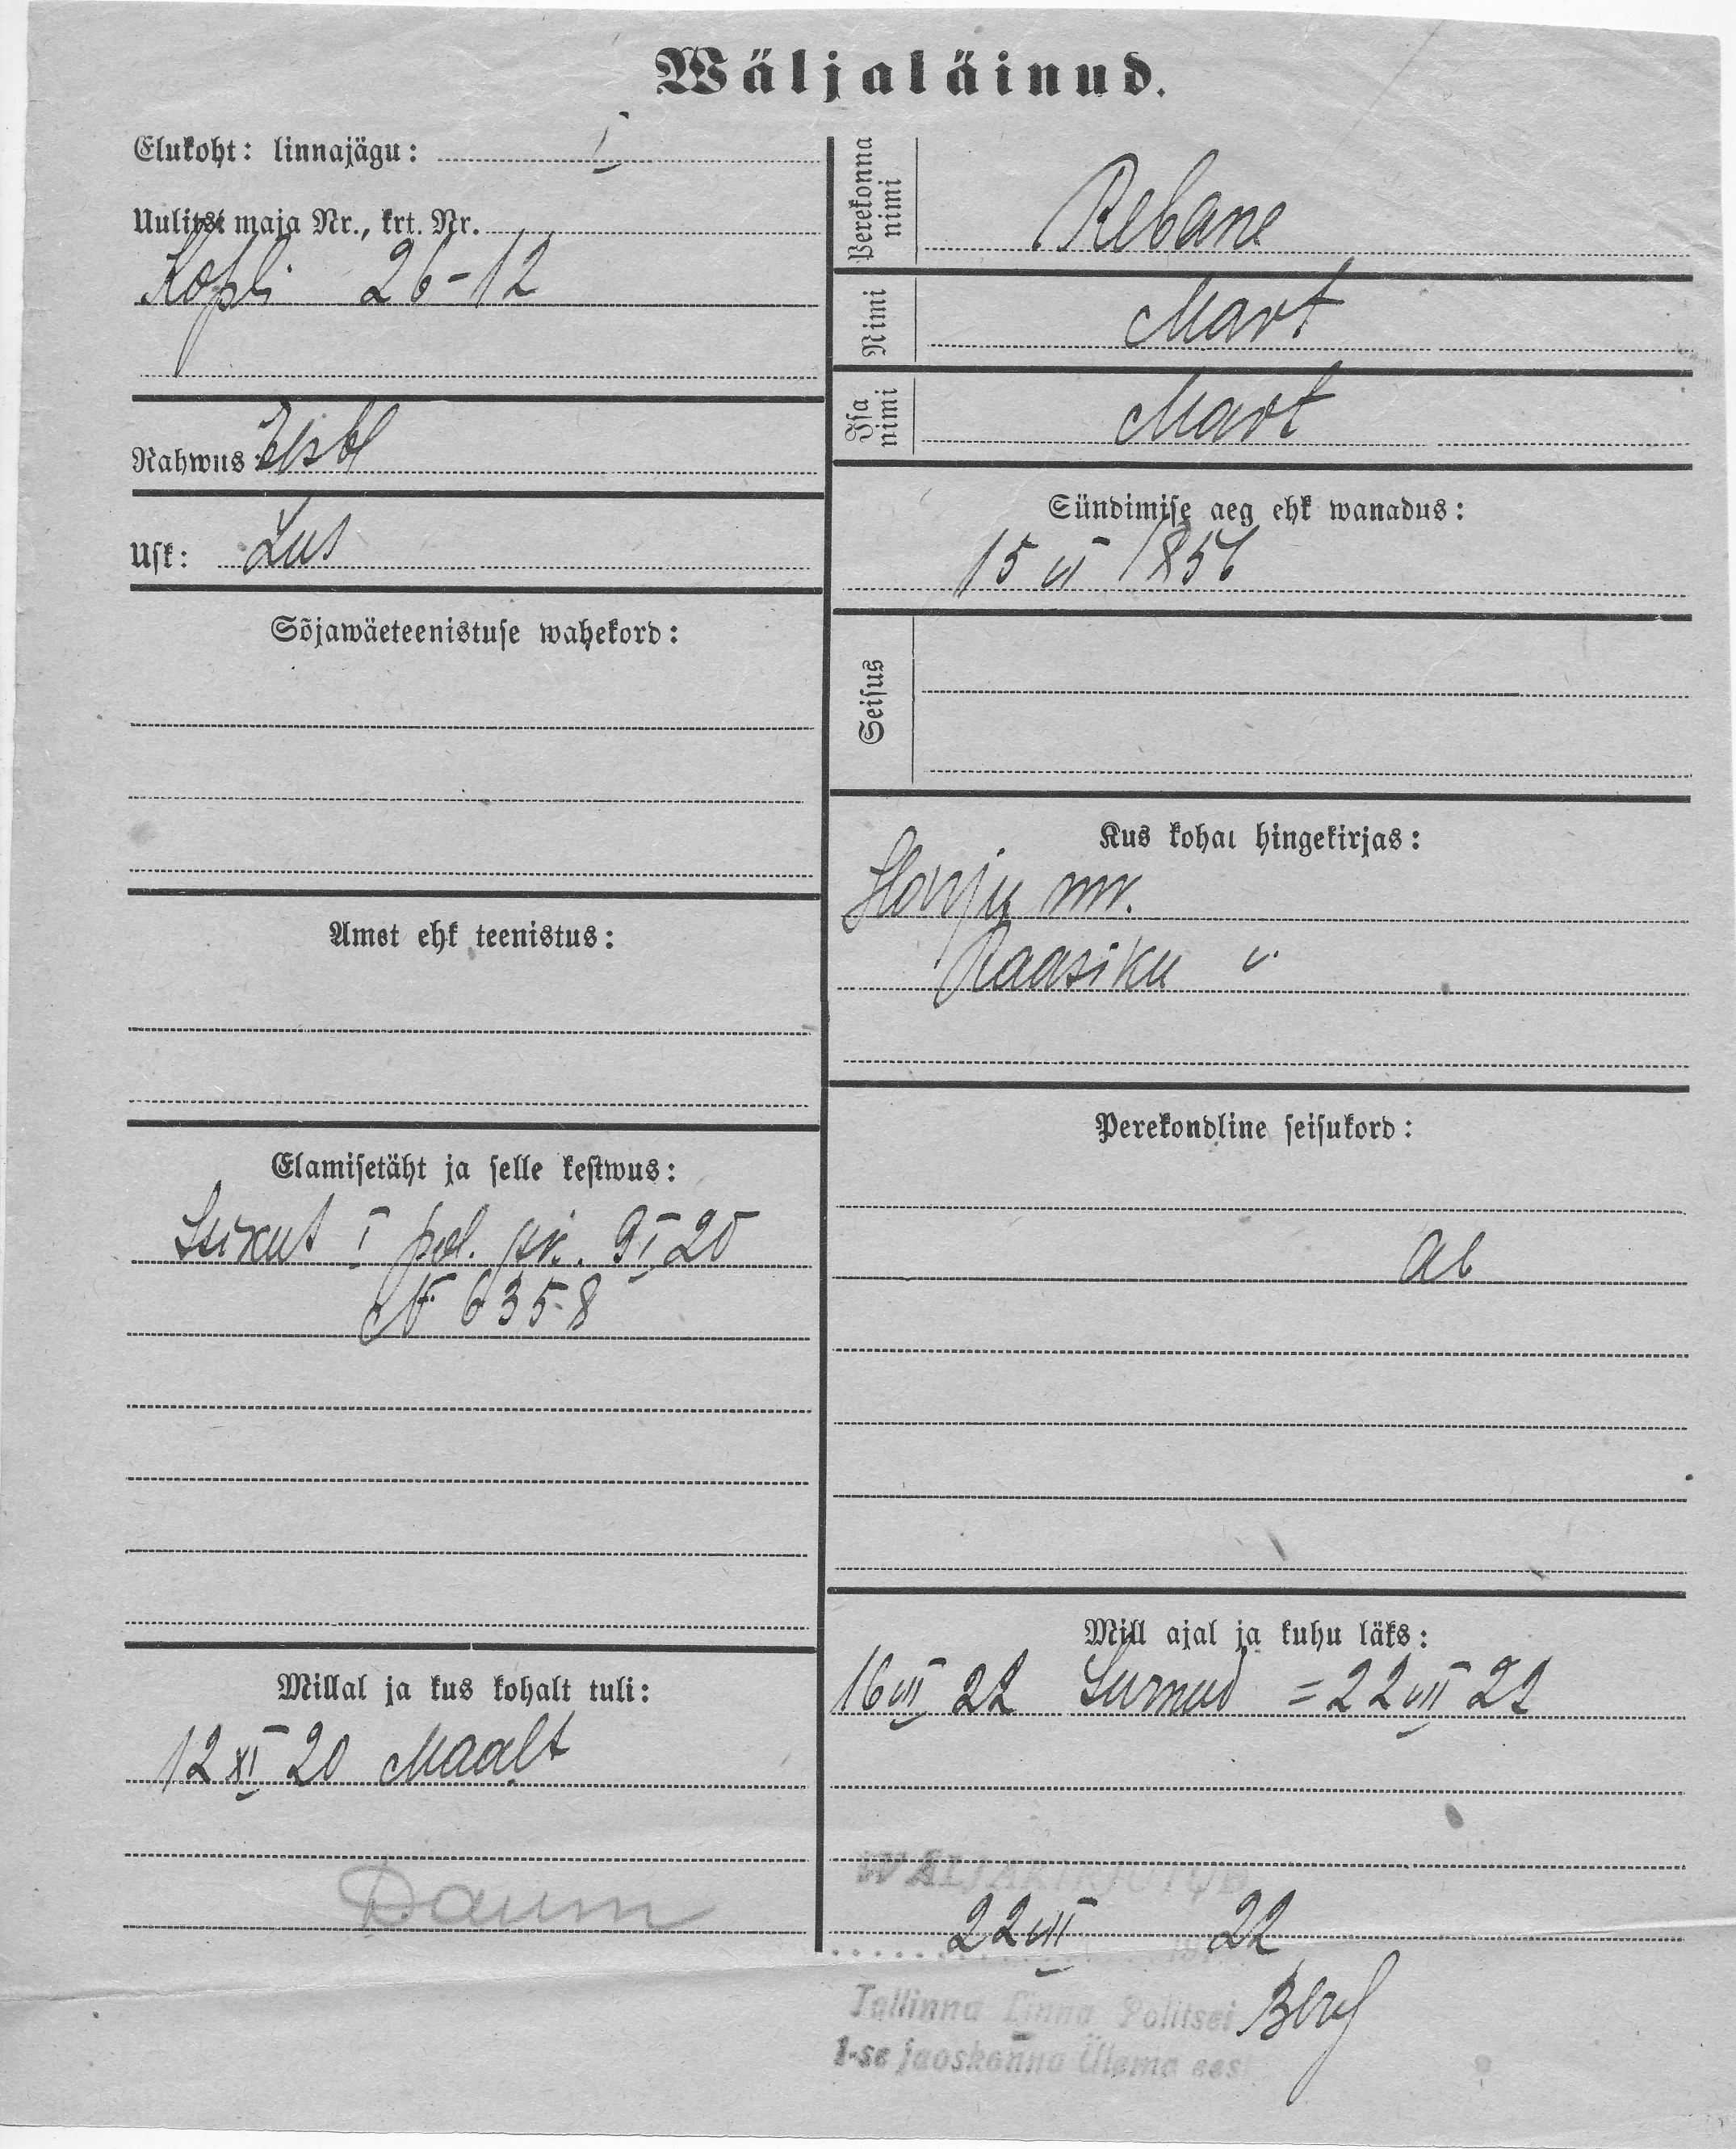 Wäljaläinud.
Elukoht: linnajägu: I
Uulits: maja Nr., krt. Nr.
Kopli 26-12
Rahwus: Eestl
Usk: Lus
Sõjawäeteenistuse wahekord:
Amet ehk teenistus:
Elamisetäht ja selle kestwus:
I pol. jsk. 9 I 20
№ 6358
Millal ja kus kohalt tuli:
12 XI 20 Maalt
Daum
Perekonna nimi Rebane
Nimi Mart
Isa nimi Mart
Sündimise aeg ehk wanadus:
15 VI 1856
Seisus
Kus kohal hingekirjas:
Harju mk.
Raasiku v.
Perekondline seisukord:
Ab
Mill ajal ja kuhu läks:
16 VII 22 Surnud = 22 VII 22
WÄLJAKIRJUTUD
22 VII 22
Tallinna Linna Politsei
1-se jaoskonna Ülema eest